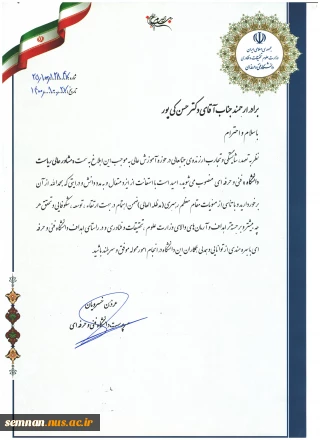 جمهوری اسلامی ایران
وزارت علوم، تحقیقات و فناوری
دانشگاه فنی و حرفه ای
برادر ارجمند جناب آقای دکتر حسن کی پور
با سلام و احترام
نظر به تعهد، شایستگی و تجارب ارزنده‌ی جنابعالی در حوزه آموزش عالی به موجب این ابلاغ به سمت مشاور عالی ریاست
دانشگاه فنی و حرفه ای منصوب می‌شوید. امید است با استعانت از ایزد متعال و به مدد دانش و درایتی که بحمدالله از آن
برخوردارید و با تاسی از منویات مقام معظم رهبری (مدظله العالی) اهتمام در جهت ارتقاء، توسعه، شکوفایی و تحقق هر
چه بیشتر و برجسته‌تر اهداف و آرمان‌های والای وزارت علوم، تحقیقات و فناوری و در راستای اهداف دانشگاه فنی و حرفه
ای با بهره مندی از توانایی و همدلی همکاران این دانشگاه در انجام امور محوله موفق و سربلند باشید.
عرفان خسرویان
سرپرست دانشگاه فنی و حرفه ای
semnan.nus.ac.ir